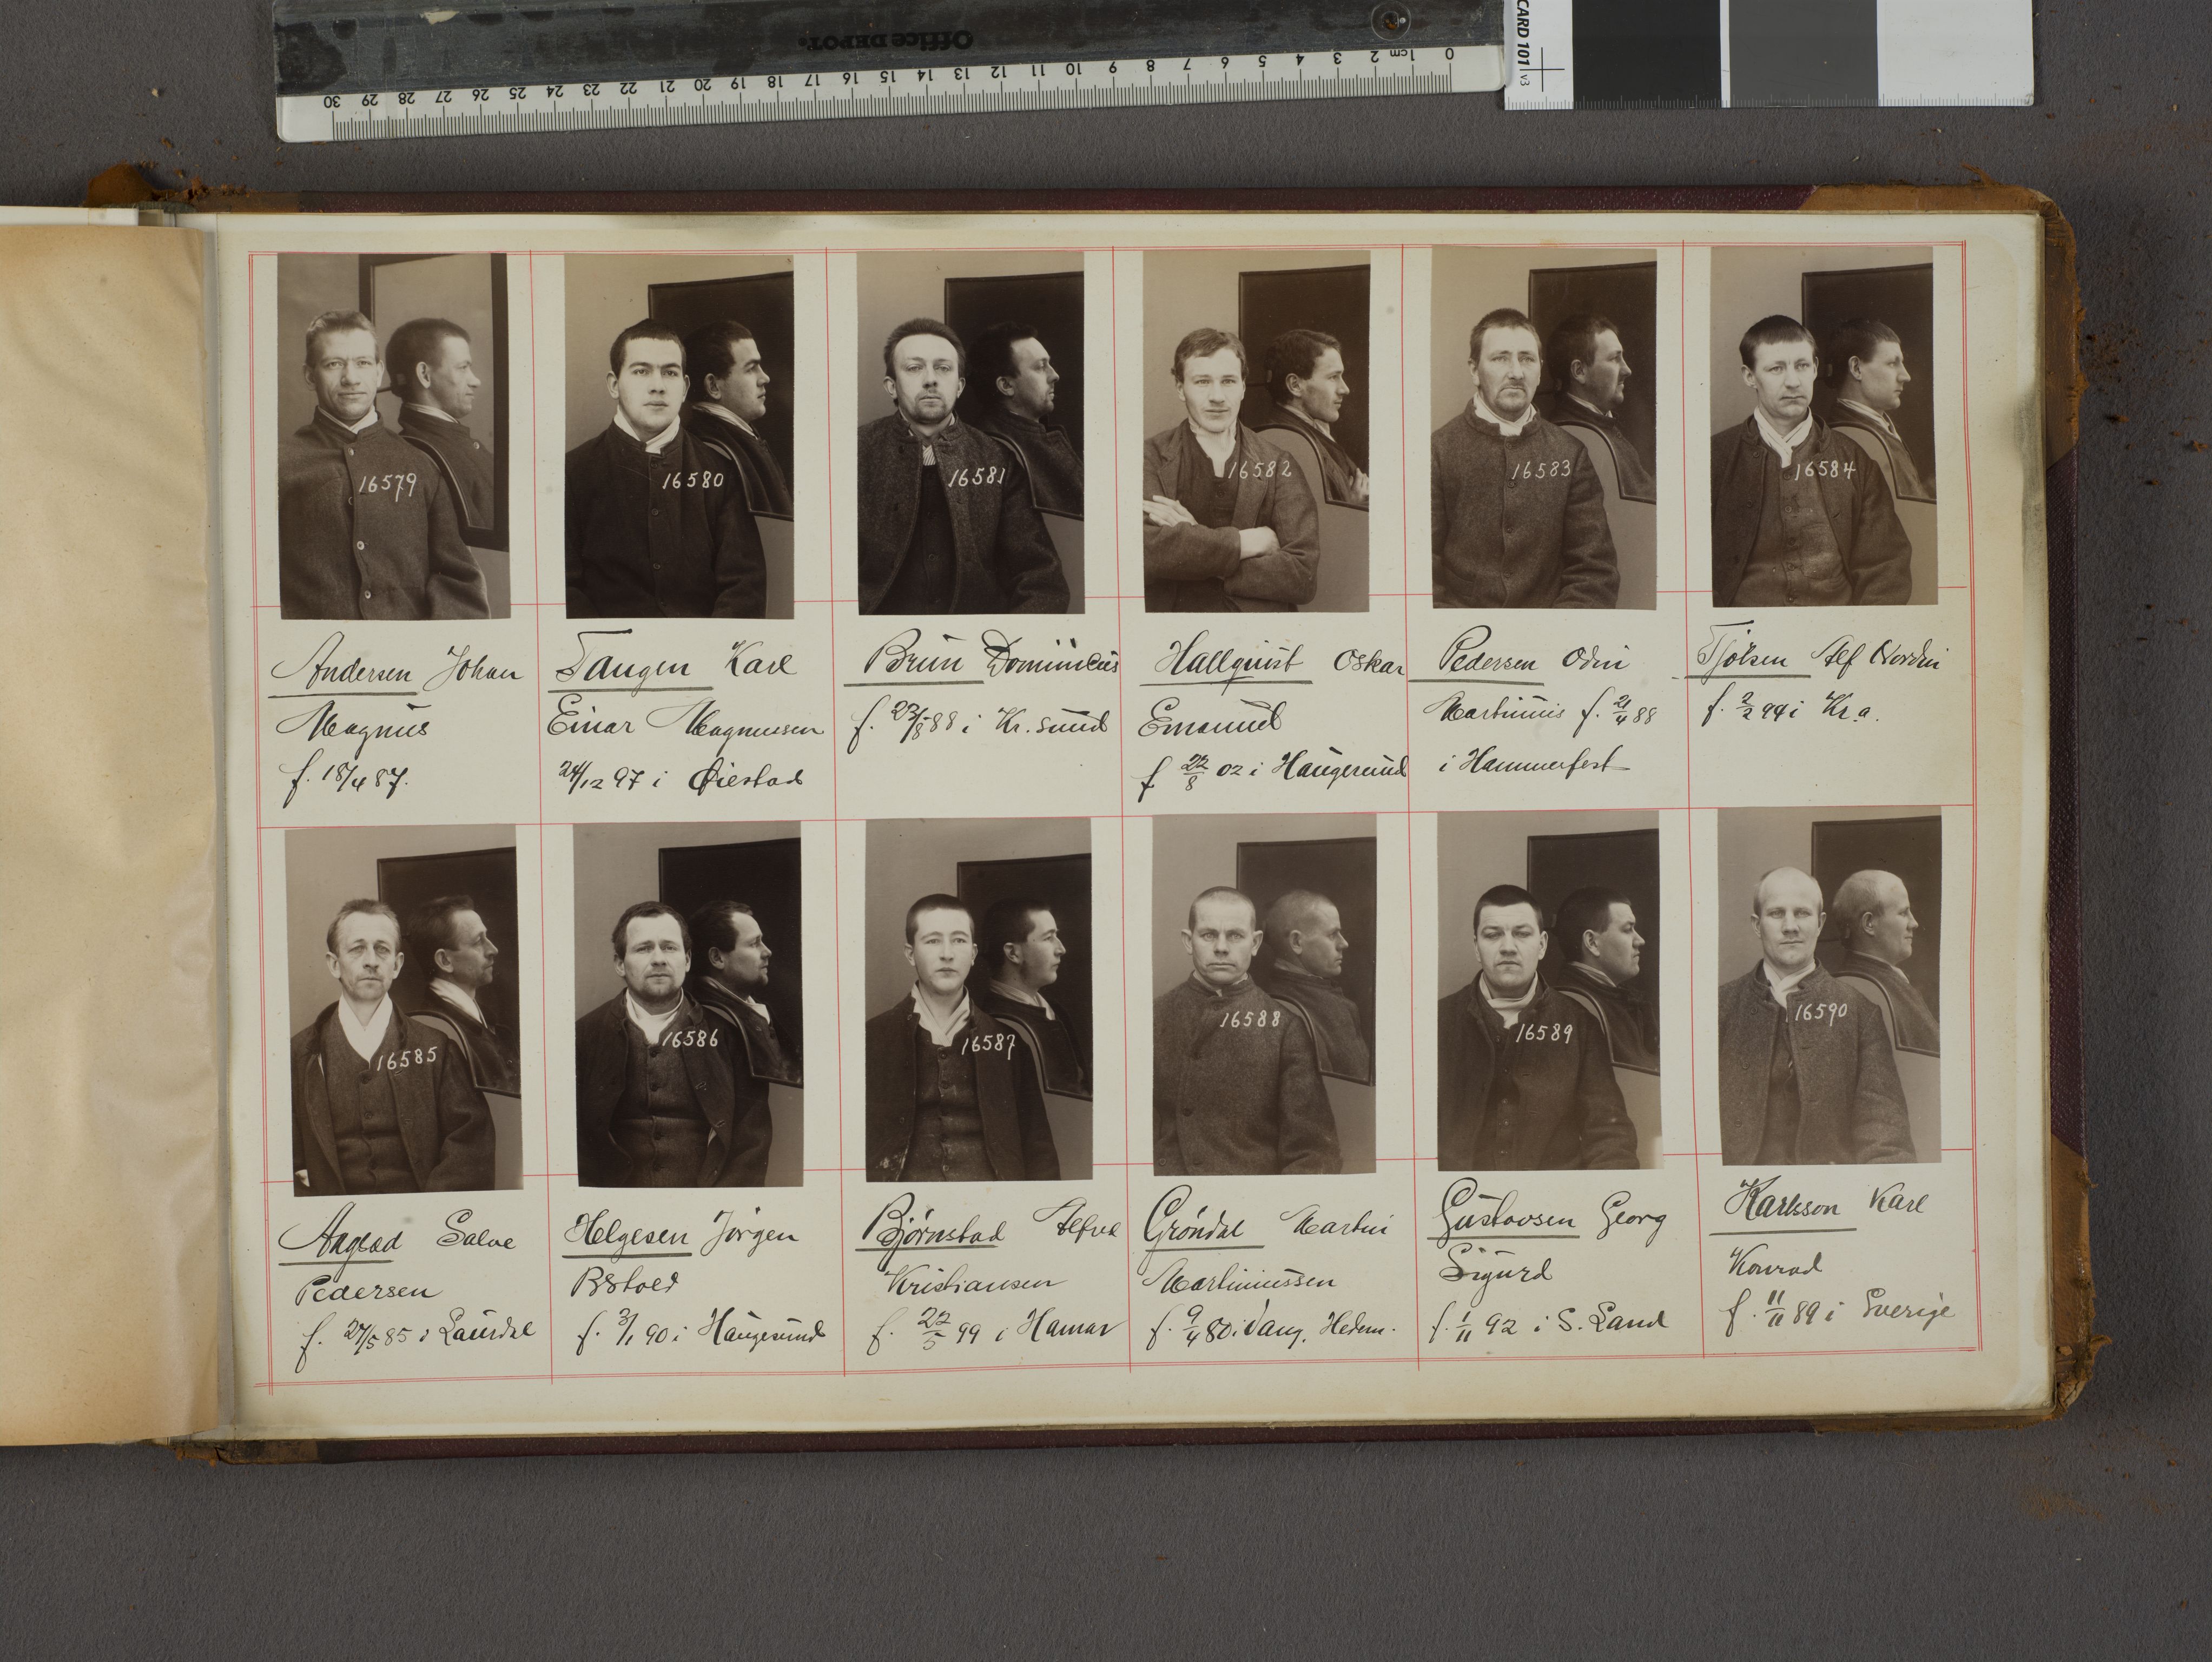 Office DEPOT.
0 1cm 2 3 4 5 6 7 8 9 10 11 12 13 14 15 16 17 18 19 20 21 22 23 24 25 26 27 28 29 30
CARD 101 v3
16579
16580
16581
16582
16583
16584
Andersen Johan
Magnus
f. 18/4 87.
Tangen Karl
Einar Magnussen
24/12 97 i Øiestad
Brun Dominicus
f. 23/8 88 i Kr.sund
Hallquist Oskar
Emanuel
f 22/8 02 i Haugesund
Pedersen Odin
Martinius f. 21/4 88
i Hammerfest
Tjölsen Alf Nordin
f. 2/2 99 i Kr.a.
16585
16586
16587
16588
16589
16590
Salve
Pedersen
f. 27/5 85 i Laurdal
Helgesen Jørgen
f. 3/1 90 i Haugesund
Bjørnstad Alfred
Kristiansen
f. 22/5 99 i Hamar
Grøndal Martin
Martiniussen
f. 9/4 80 i Vang, Hedem.
Gustavsen Georg
Sigurd
f. 1/11 92 i S. Land
Karlsson Karl
Konrad
f. 11/11 89 i Sverige